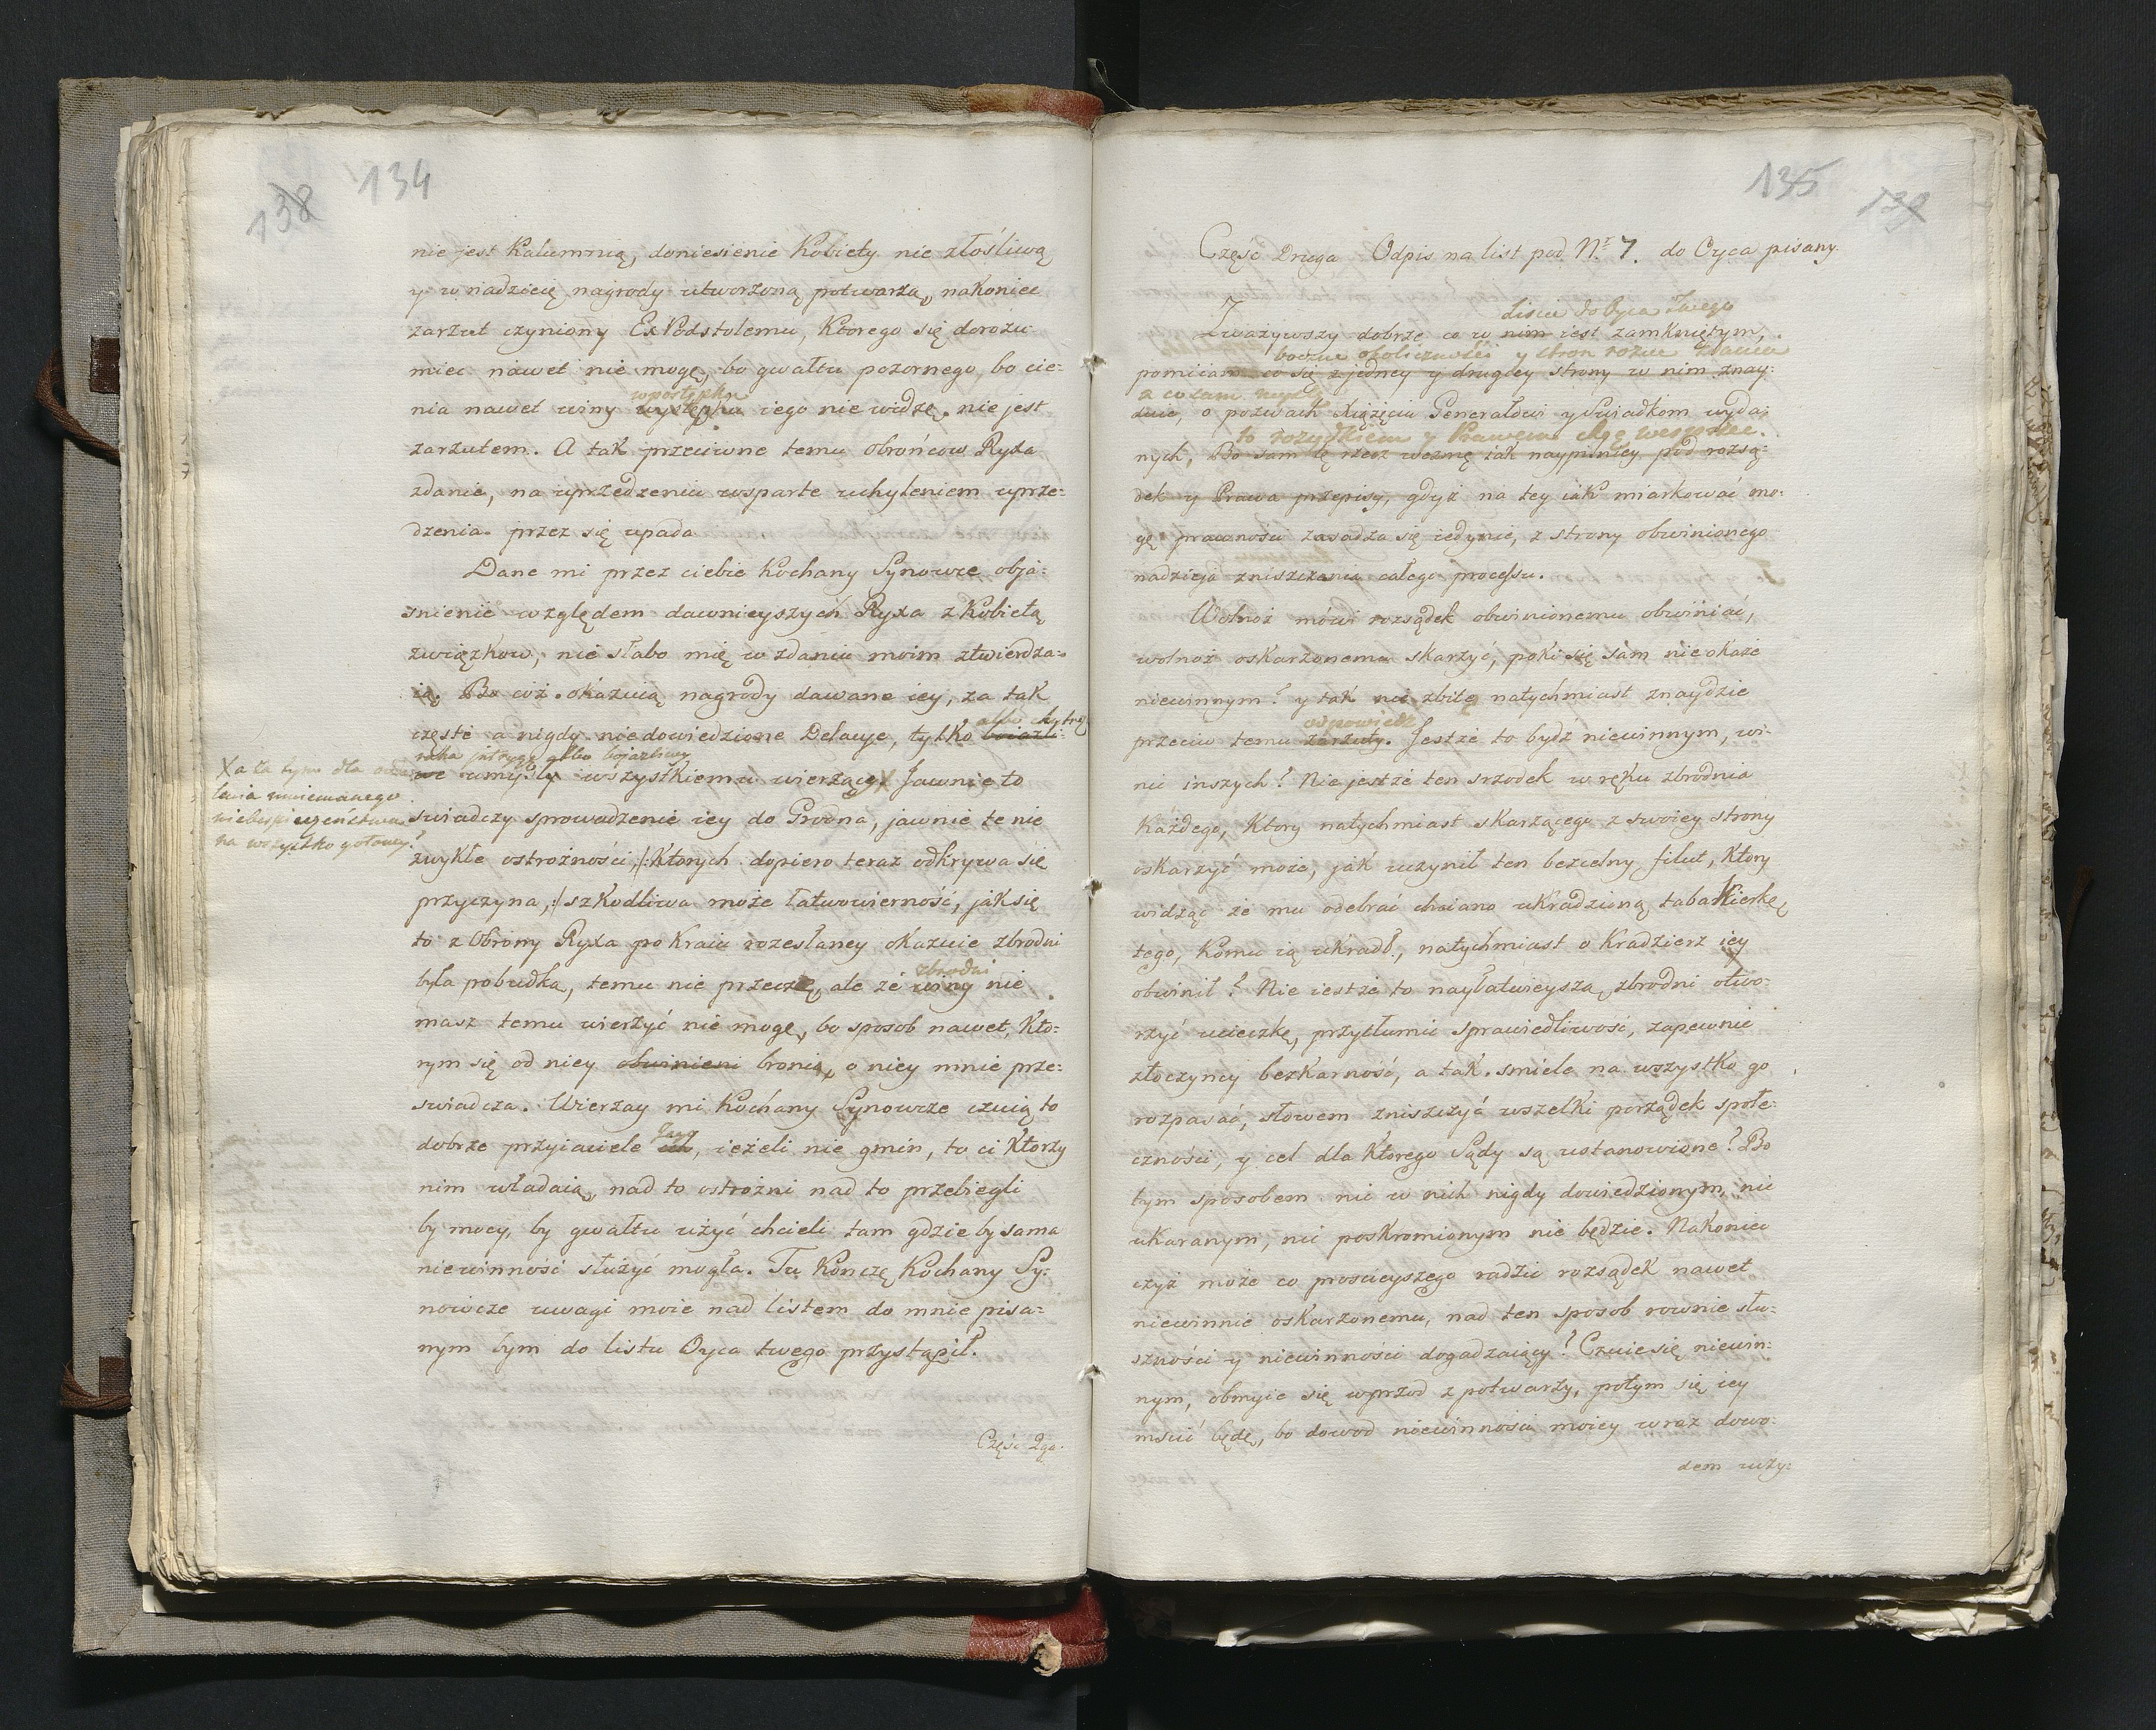 138 134
nie jest Kalumnią, doniesienie Kobiety nie złośliwą
y w nadzieię nagrody utworzoną potwarzą, nakoniec
zarzut czyniony ExPodstolemu, Ktorego się dorozu-
miec nawet nie mogę, bo gwałtu pozornego, bo cie-
nia nawet winy występku iego nie widzę. nie jest
zarzutem. A tak przeciwne temu Obrońcow Ryxa
zdanie, na uprzedzeniu wsparte uchyleniem uprze-
dzenia przez się upada
Dane mi przez ciebie Kochany Synowce obja-
snienie względem dawnieyszych Ryxa z Kobietą
związkow, nie słabo mię w zdaniu moim ztwierdza-
ią. Bo coż okazuią nagrody dawane iey, za tak
albo chytrą
częste a nigdy niedowiedzione Delacye, tylko boiazli-
albo bojazliwy
we umysły wszystkiemu wierzące X Jawnie to
X a ta tym dla
mniemanego
niebespieczeństwa
na wszystko gotowy?
swiadczy sprowadzenie iey do Grodna, jawnie te nie
zwykłe ostrożności, /:Ktorych dopiero teraz odkrywa się
przyczyna, :/ szkodliwa może łatwowierność, jak się
to z Obrony Ryxa po Kraiu rozesłaney okazuie zbrodni
zbrodni
była pobudką, temu nie przeczę, ale że winy nie
masz temu wierzyć nie mogę, bo sposob nawet, Kto-
rym się od niey obwinieni bronią, o niey mnie prze-
swiadcza. Wierzay mi Kochany Synowcze czuią to
dobrze przyiaciele ich, ieżeli nie gmin, to ci Ktorzy
nim władaią, nad to ostrożni nad to przebiegli
by mocy, by gwałtu użyć chcieli tam gdzie by sama
niewinność służyć mogła. Tu Konczę Kochany Sy-
nowcze uwagi moie nad listem do mnie pisa-
nym bym do listu Oyca twego przystąpił.
Częśc 2ga.
135 139
Częśc Druga Odpis na list pod Nr. 7. do Oyca pisany.
Liscie do Oyca Twego
Zważywszy dobrze co w nim iest zamkniętym,
okolicznośći y stron rożne zdania
pomiiam co się z jedney y drugiey strony w nim znay-
a co sam myślę
duie, o pozwach Xiążęciu Generałowi y Swiadkom wyda-
to rozsądkiem y Prawem chcę wesprzec.
nych, Bo sam tę rzecz wezmę iak naypilniey pod rozsą-
dek y Prawa przepisy, gdyż na tey iak miarkować mo-
gę prawności zasadza się iedynie, z strony obwinionego
nadzieja zniszczenia całego processu.
Wolnoż mówi rozsądek obwinionemu obwiniać,
wolnoż oskarzonemu skarżyć, poki się sam nie okaże
niewinnym? y tak na zbitę natychmiast znaydzie
odpowiedz
przeciw temu zarzuty. Jestże to bydź niewinnym, wi-
nić inszych? Nie jestże ten srzodek w ręku zbrodnia
Każdego, Ktory natychmiast skarżącego z swoiey strony
oskarzyć może, jak uczynił ten bezcelny filut, Ktory
widząc że mu odebrać chciano ukradzioną tabaKierkę,
tego, Komu ią ukradł, natychmiast o Kradzierz iey
obwinił? Nie iestże to nayłatwieyszą zbrodni otwo-
rzyć ucieczkę, przytłumić sprawiedliwość, zapewnić
złoczyncy bezkarność, a tak smiele na wszystko go
rozpasać, słowem zniszczyć wszelki porządek społe-
czności, y cel dla Ktorego Sądy są ustanowione? Bo
tym sposobem nic w nich nigdy dowiedzionym, nic
ukaranym, nic poskromionym nie będzie. Nakoniec
czyż może co prosciejszego radzić rozsądek nawet
niewinnie oskarzonemu, nad ten sposob rownie słu-
szności y niewinności dogadzaiący? Czuie się niewin-
nym, obmyie się wprzod z potwarzy, potym się iey
mscić będę, bo dowod niewinności moiey wraz dowo-
dem uży-